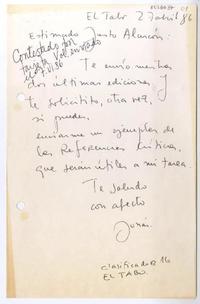 El Tabo 2 abril 86
Estimado Justo Alarcón:
Contestado por
tarjeta
86
Te envío nuestras
dos últimas ediciones y
te solicito, otra vez,
si puedes,
enviarme un ejemplar de
las Referencias Críticas,
que serán útiles a mi tarea.
Te saludo
con afecto
Jonás.
Clasificador 16
EL TABO.